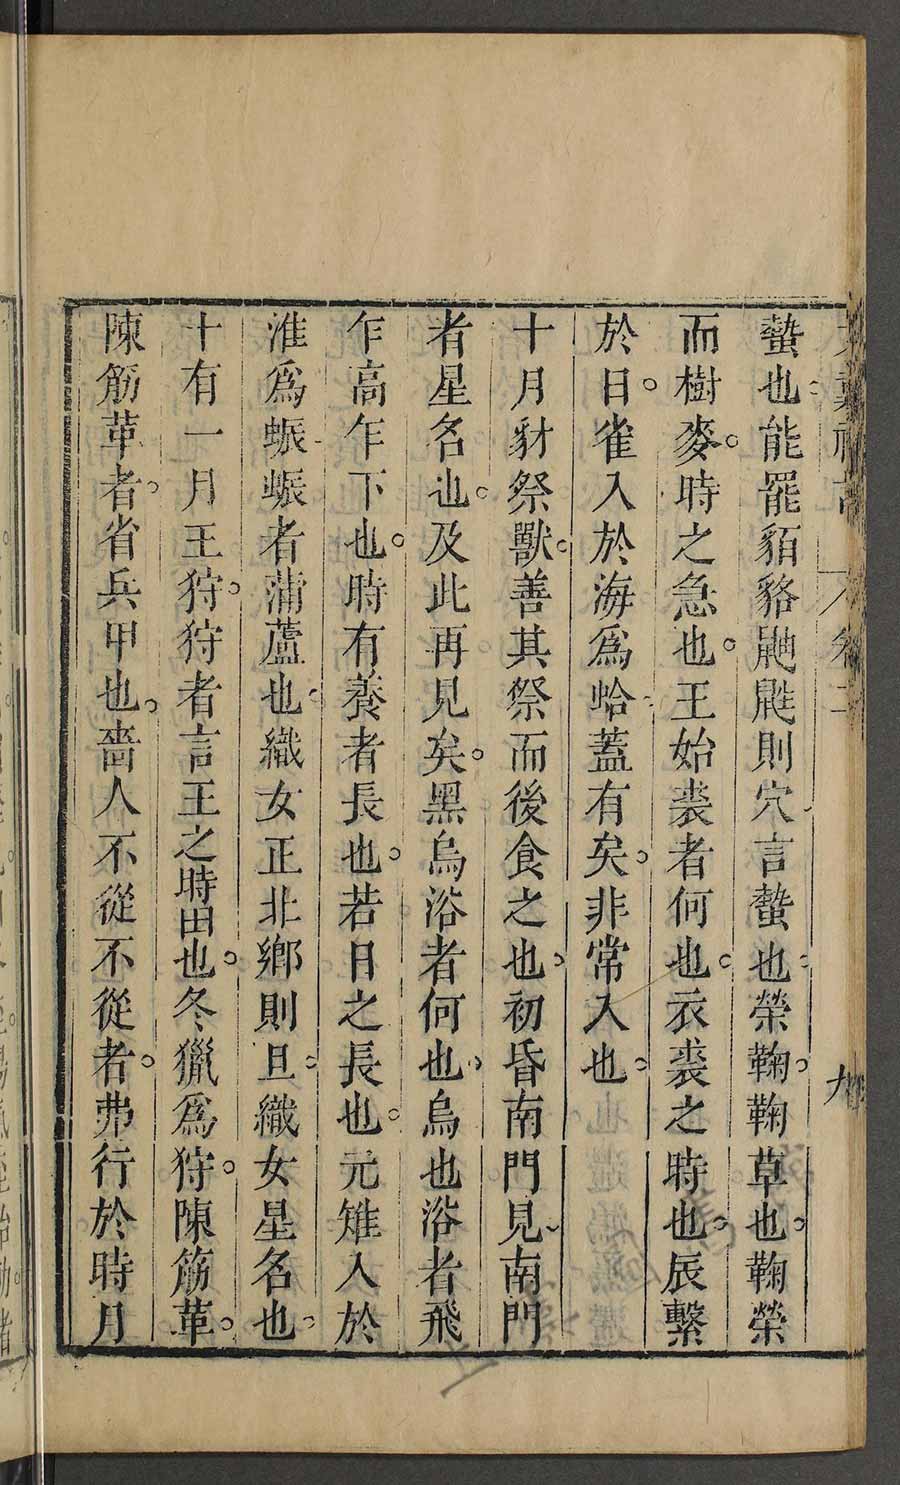 蟄也能罷貊貉鼬則穴言蟄也榮鞠鞠草也鞠榮
而樹麥時之急也王始裘者何也衣裘之時也辰繫
於日雀入於海爲蛤蓋有矣非常入也
十月豺祭獸善其祭而後食之也初昏南門見南門
者星名也及此再見矣黑烏浴者何也烏也浴者飛
乍高乍下也時有養者長也若日之長也元雉入於
淮爲蜄蜄者蒲蘆也織女正北鄉則旦織女星名也
十有一月王狩狩者言王之時田也冬獵爲狩陳筋革
陳筋革者省兵甲也嗇人不從不從者弗行於時月
九